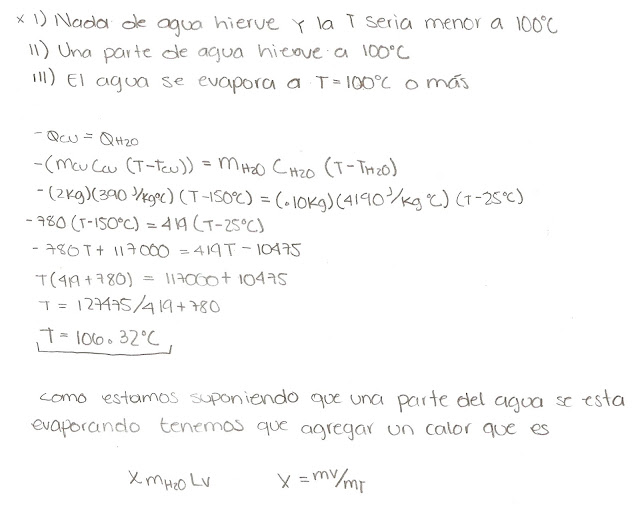 x I) Nada de agua hierve y la T seria menor a 100°C
II) Una parte de agua hierve a 100°C
III) El agua se evapora a T=100°C o más
-Qcu = QH20
-(mcu Ccu (T-tcu)) = mH20 CH20 (T-TH20)
-(2kg)(390 J/kg°C)(T-150°C) = (.10kg)(4190 J/kg °C) (T-25°C)
-780 (T-150°C) = 419 (T-25°C)
-780T + 117000 = 419T - 10475
T(419+780) = 117000 + 10475
T = 127475/419+780
T = 106.32°C
como estamos suponiendo que una parte del agua se esta
evaporando tenemos que agregar un calor que es
X mH20 Lv X = mv/mT